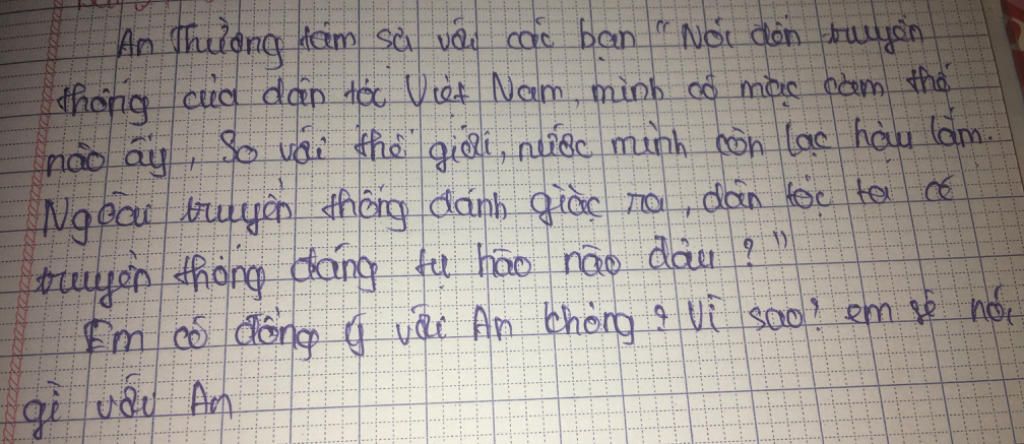 An Thường tâm sự với các bạn "Nói đến truyền
thống của dân tộc Việt Nam, mình có mặc cảm thế
nào ấy, So với thế giới, nước mình còn lạc hậu lắm.
Ngoài truyền thống đánh giặc ra, dân tộc ta có
truyền thống đáng tự hào nào đâu?"
Em có đồng ý với An không? Vì sao? em sẽ nói
gì với An